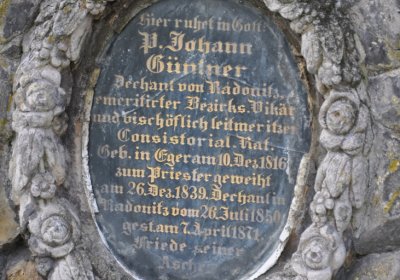 Hier ruhet in Gott:
P. Johann
Güntner
Dechant von Radonitz,
emeritirter Bezirks-Vikär
und bischöflich leitmeritzer
Consistorial-Rat.
Geb. in Eger am 10. Dez. 1816
zum Priester geweiht
am 26. Dez. 1839. Dechant in
Radonitz vom 26. Juli 1850
gest. am 7. April 1871.
Friede seiner
Asche